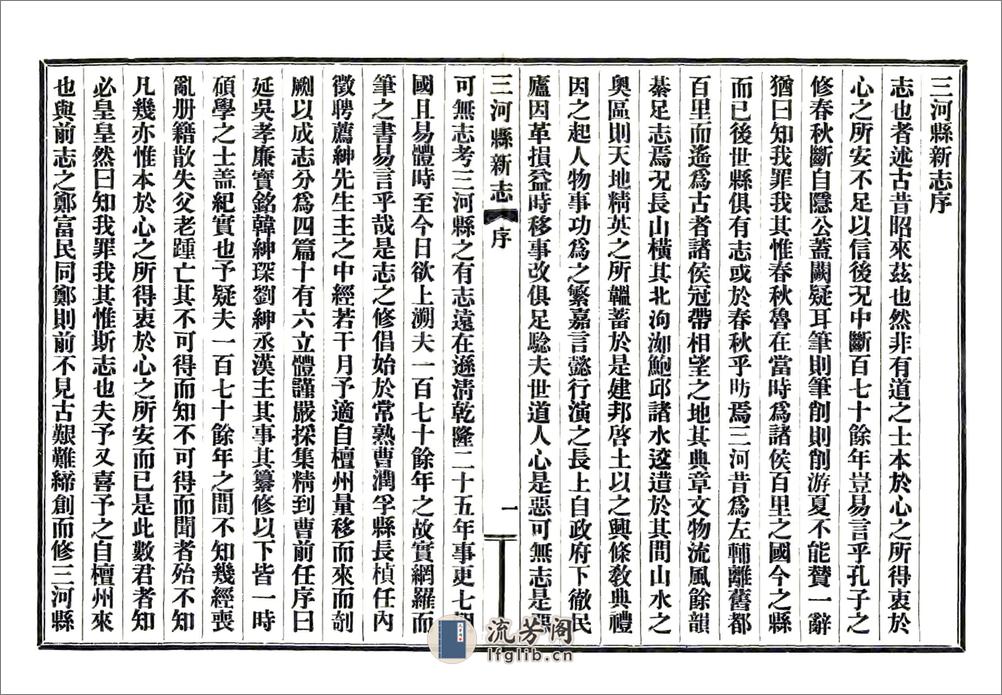 三河縣新志序
志也者述古昔昭來茲也然非有道之士本於心之所得衷於
心之所安不足以信後況中斷百七十餘年豈易言乎孔子之
修春秋斷自隱公蓋闕疑耳筆則筆削則削游夏不能贊一辭
猶曰知我罪我其惟春秋魯在當時爲諸侯百里之國今之縣
而已後世縣俱有志或於春秋乎昉焉三河昔爲左輔離舊都
百里而遙爲古者諸侯冠帶相望之地其典章文物流風餘韻
綦足志焉況長山橫其北泃洳鮑邱諸水逶迤於其間山水之
奧區則天地精英之所韞蓄於是建邦啓土以之興條敎典禮
因之起人物事功爲之繁嘉言懿行演之長上自政府下徹民
廬因革損益時移事改俱足騐夫世道人心是惡可無志是惡
三河縣新志
序
一
可無志考三河縣之有志遠在遜淸乾隆二十五年事更七朝
國且易體時至今日欲上溯夫一百七十餘年之故實網羅而
筆之書易言乎哉是志之修倡始於常熟曹潤孚縣長楨任內
徵聘薦紳先生主之中經若干月予適自檀州量移而來而剞
劂以成志分爲四篇十有六立體謹嚴採集精到曹前任序曰
延吳孝廉寶銘韓紳琛劉紳丞漢主其事其纂修以下皆一時
碩學之士蓋紀實也予疑夫一百七十餘年之間不知幾經喪
亂册籍散失父老踵亡其不可得而知不可得而聞者殆不知
凡幾亦惟本於心之所得衷於心之所安而已是此數君者知
必皇皇然曰知我罪我其惟斯志也夫予又喜予之自檀州來
也與前志之鄭富民同鄭則前不見古艱難締創而修三河縣
流芳阁
lfglib.cn